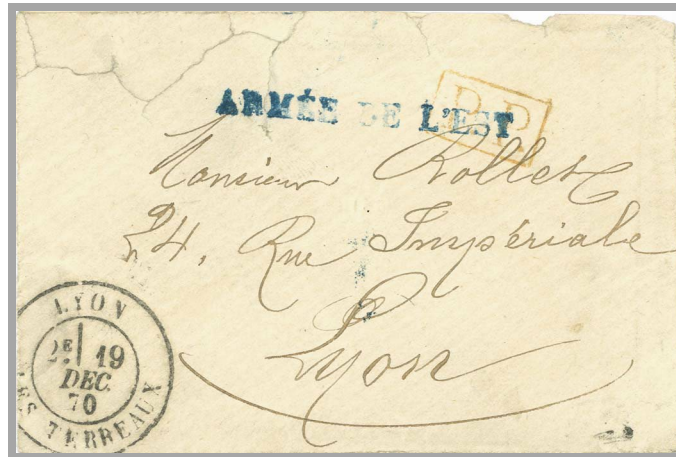 ARMÉE DE L'EST
P.P.
Monsieur Rollet
24, Rue Impériale
Lyon
LYON
2E 19
DEC.
70
LES TERREAUX